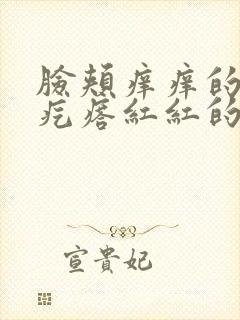 臉頰痒痒的
疙瘩紅紅的
宣貴妃